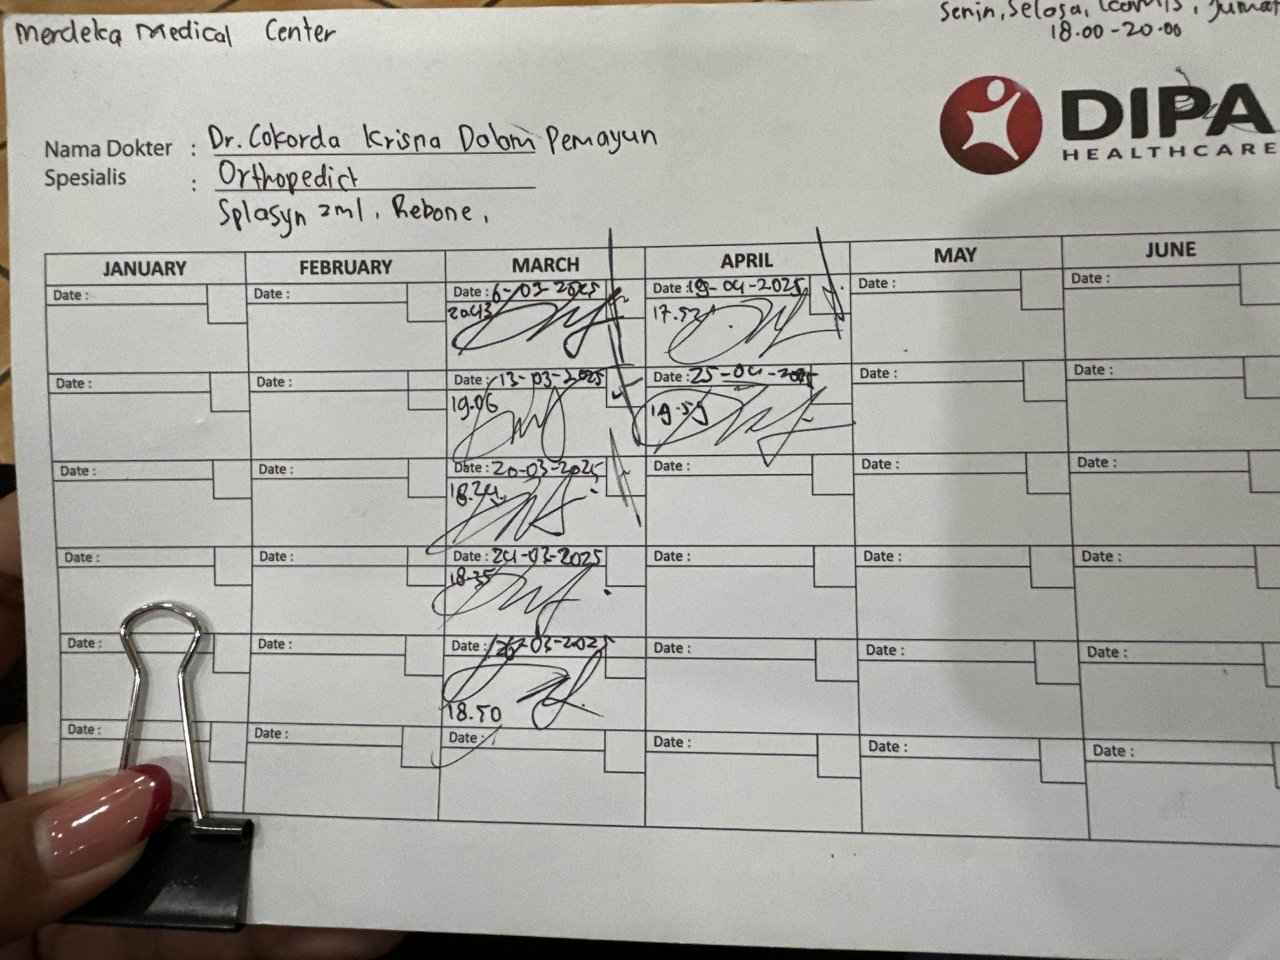 Merdeka Medical Center
Senin, Selasa, Kamis, Jumat
18.00-20.00
DIPA
HEALTHCARE
Nama Dokter : Dr. Cokorda Krisna Dalam Pemayun
Spesialis : Orthopedict
Splasyn 2ml, Rebone,
JANUARY FEBRUARY MARCH APRIL MAY JUNE
Date : Date : Date : 6-03-2025 Date : 19-04-2025 Date : Date :
20.43 17.52
Date : Date : Date : 13-03-2025 Date : 25-04-2025 Date : Date :
19.06 19.59
Date : Date : Date : 20-03-2025 Date : Date : Date :
18.24
Date : Date : Date : 24-03-2025 Date : Date : Date :
18.35
Date : Date : Date : 26-03-2025 Date : Date : Date :
18.50
Date : Date : Date : Date : Date : Date :